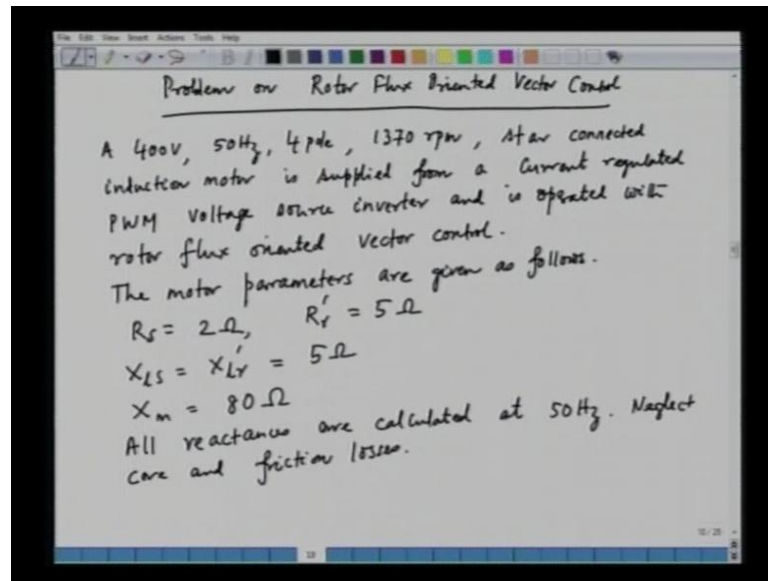 File Edit View Insert Actions Tools Help
Problem on Rotor Flux Oriented Vector Control
A 400V, 50Hz, 4 pole, 1370 rpm, star connected
induction motor is supplied from a current regulated
PWM voltage source inverter and is operated with
rotor flux oriented vector control.
The motor parameters are given as follows.
Rs = 2 Ω, Rr' = 5 Ω
Xls = Xlr' = 5 Ω
Xm = 80 Ω
All reactances are calculated at 50 Hz. Neglect
core and friction losses.